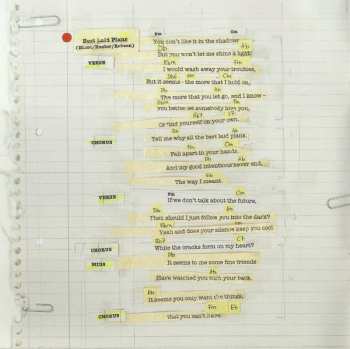 Best Laid Plans
(Blunt/Booker/Robson)
Fm Cm
VERSE You don't like it in the shadow
Db Ab
But you won't let me shine a light
Ebm
I would wash away your troubles,
Cm
But it seems - the more that I hold on,
Db Ab
The more that you let go, and I know -
Fm Ab
you better let somebody love you,
Or find yourself on your own.
CHORUS Tell me why all the best laid plans
Fm Cm
Fall apart in your hands
Db Ab
And my good intentions never end,
The way I meant.
VERSE Fm Cm
If we don't talk about the future,
Db Ab
Then should I just follow you into the dark?
Yeah and does your silence keep you cool
While the cracks form on my heart?
CHORUS
MID8 It seems to me some fine friends
Ab
Have watched you turn your back.
It seems you only want the things,
Fm Eb
CHORUS that you can't have.